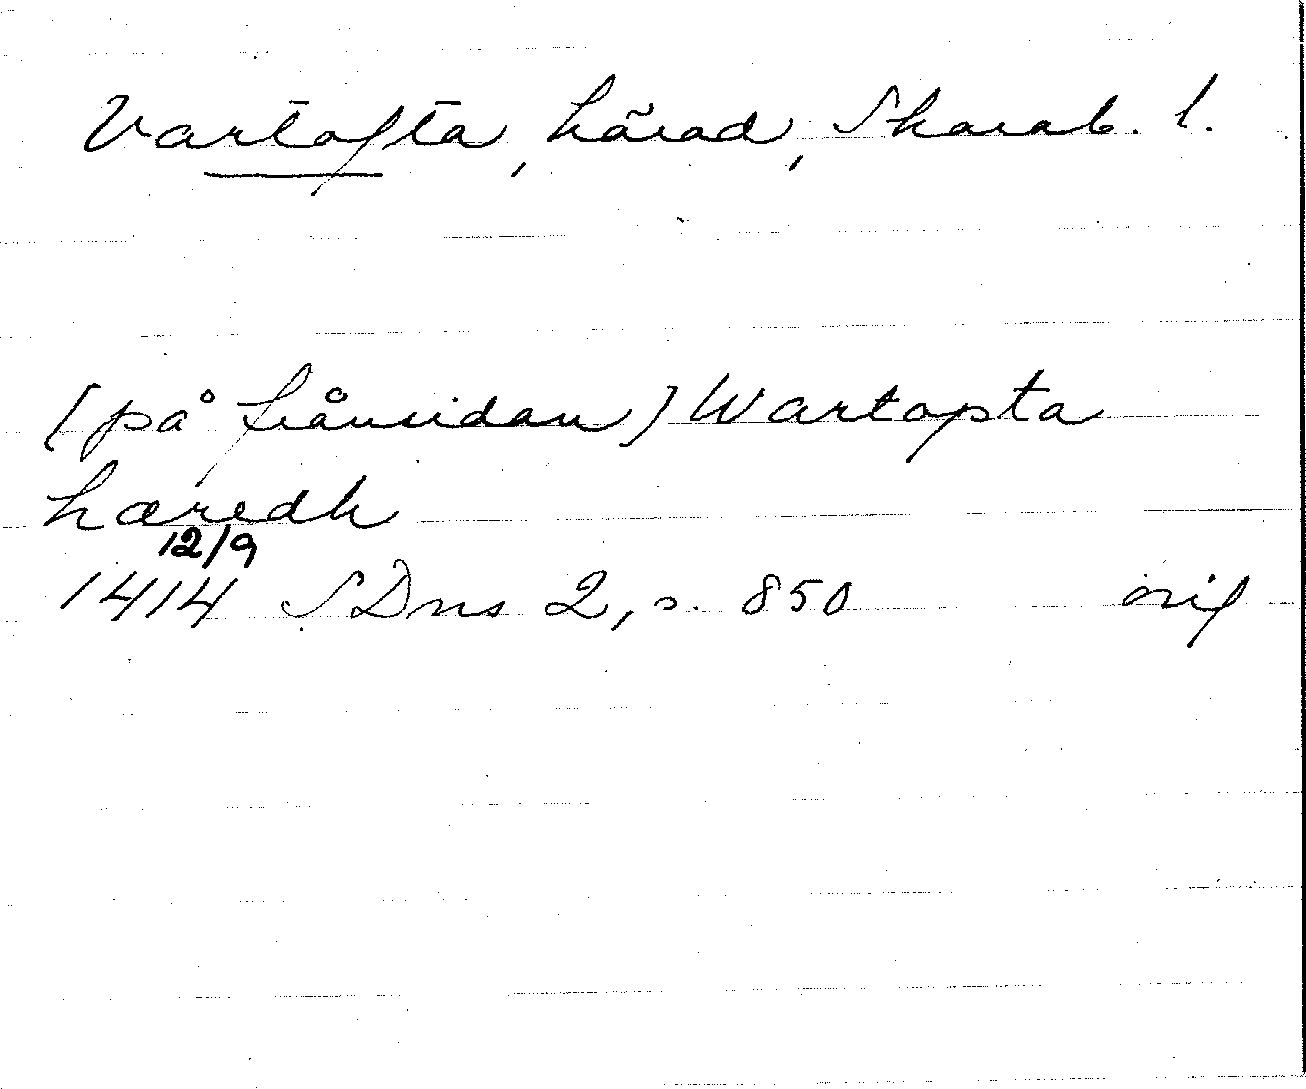 Vartofta, härad, Skarab. l.
[på frånsidan] Wartopta
hæredh
12/9
1414 SDns 2, s. 850 orig